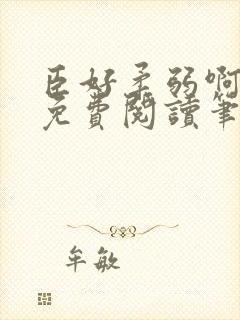 臣好柔弱啊
免費閱讀筆
牟敏